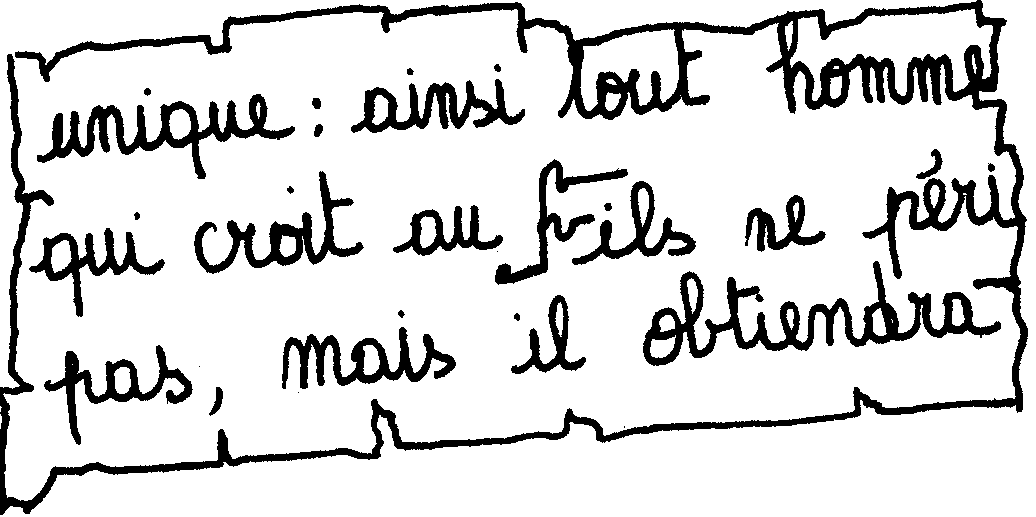 unique : ainsi tout homme
qui croit au Fils ne péri
pas, mais il obtiendra